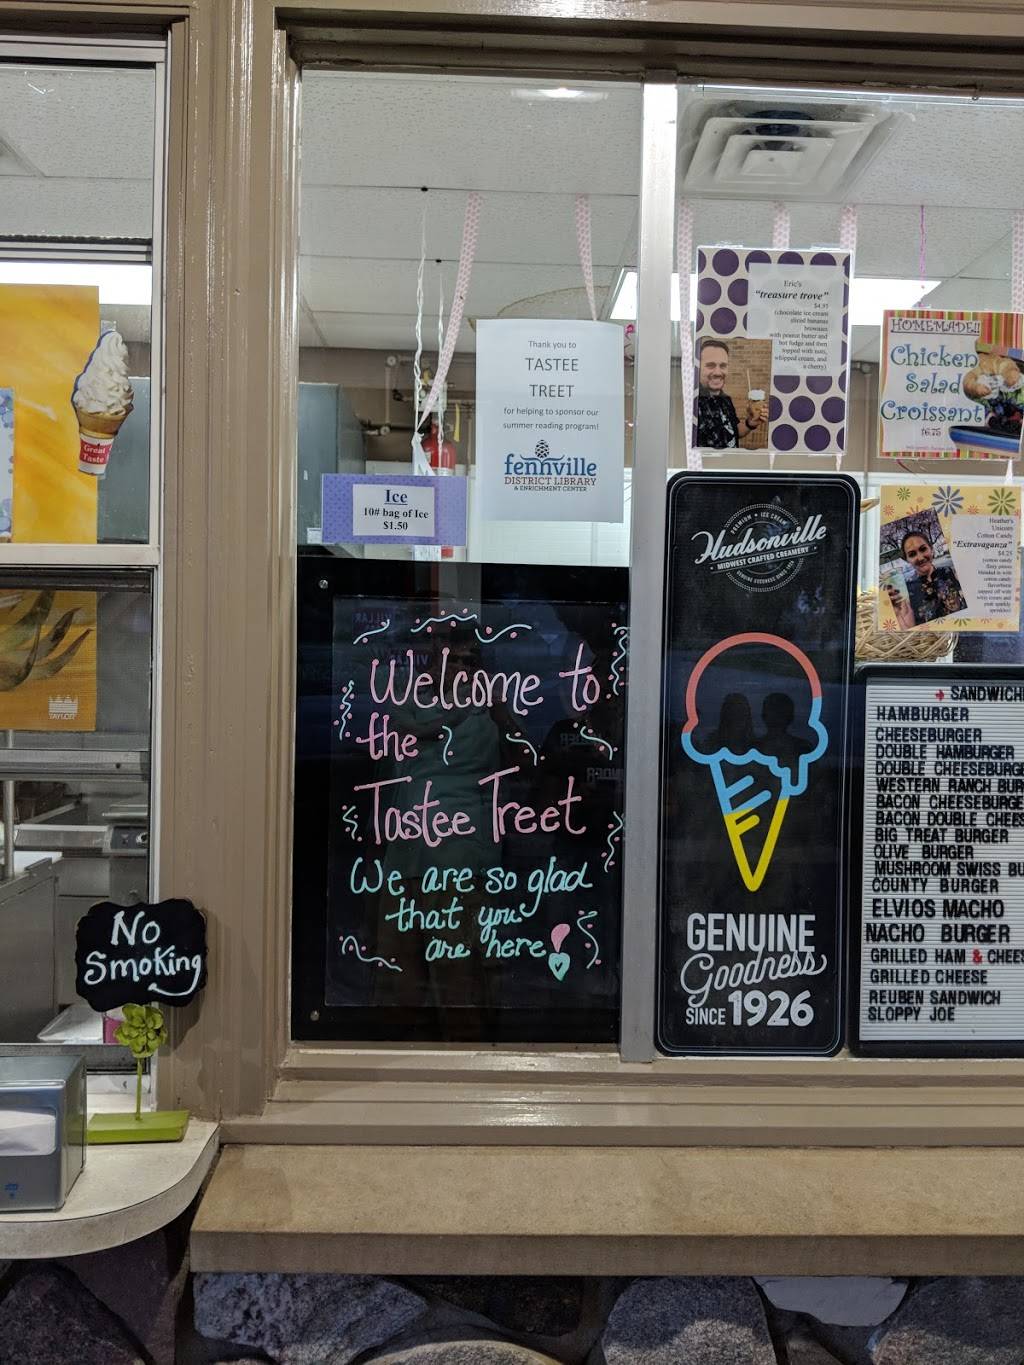 Great
Taste
TAYLOR
No
Smoking
Ice
10# bag of Ice
$1.50
Thank you to
TASTEE
TREET
for helping to sponsor our
summer reading program!
fennville
DISTRICT LIBRARY
& ENRICHMENT CENTER
Welcome to
the
Tastee Treet
We are so glad
that you
are here!
PREMIUM • ICE CREAM
Hudsonville
MIDWEST CRAFTED CREAMERY
GENUINE GOODNESS SINCE 1926
GENUINE
Goodness
SINCE 1926
Eric's
"treasure trove"
$4.95
(chocolate ice cream
sliced bananas
brownies
with peanut butter and
hot fudge and then
topped with nuts,
whipped cream, and
a cherry)
HOMEMADE!!
Chicken
Salad
Croissant
$6.75
Heather's
Unicorn
Cotton Candy
"Extravaganza"
$4.25
SANDWICH
HAMBURGER
CHEESEBURGER
DOUBLE HAMBURGER
DOUBLE CHEESEBURGE
WESTERN RANCH BUR
BACON CHEESEBURGE
BACON DOUBLE CHEES
BIG TREAT BURGER
OLIVE BURGER
MUSHROOM SWISS BU
COUNTY BURGER
ELVIOS MACHO
NACHO BURGER
GRILLED HAM & CHEES
GRILLED CHEESE
REUBEN SANDWICH
SLOPPY JOE